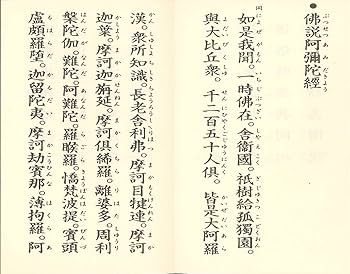 佛說阿彌陀經
如是我聞。一時佛在。舍衞國。祇樹給孤獨園。
與大比丘衆。千二百五十人俱。皆是大阿羅
漢。衆所知識。長老舍利弗。摩訶目犍連。摩訶
迦葉。摩訶迦旃延。摩訶俱絺羅。離婆多。周利
槃陀伽。難陀。阿難陀。羅睺羅。憍梵波提。賓頭
盧頗羅墮。迦留陀夷。摩訶劫賓那。薄拘羅。阿